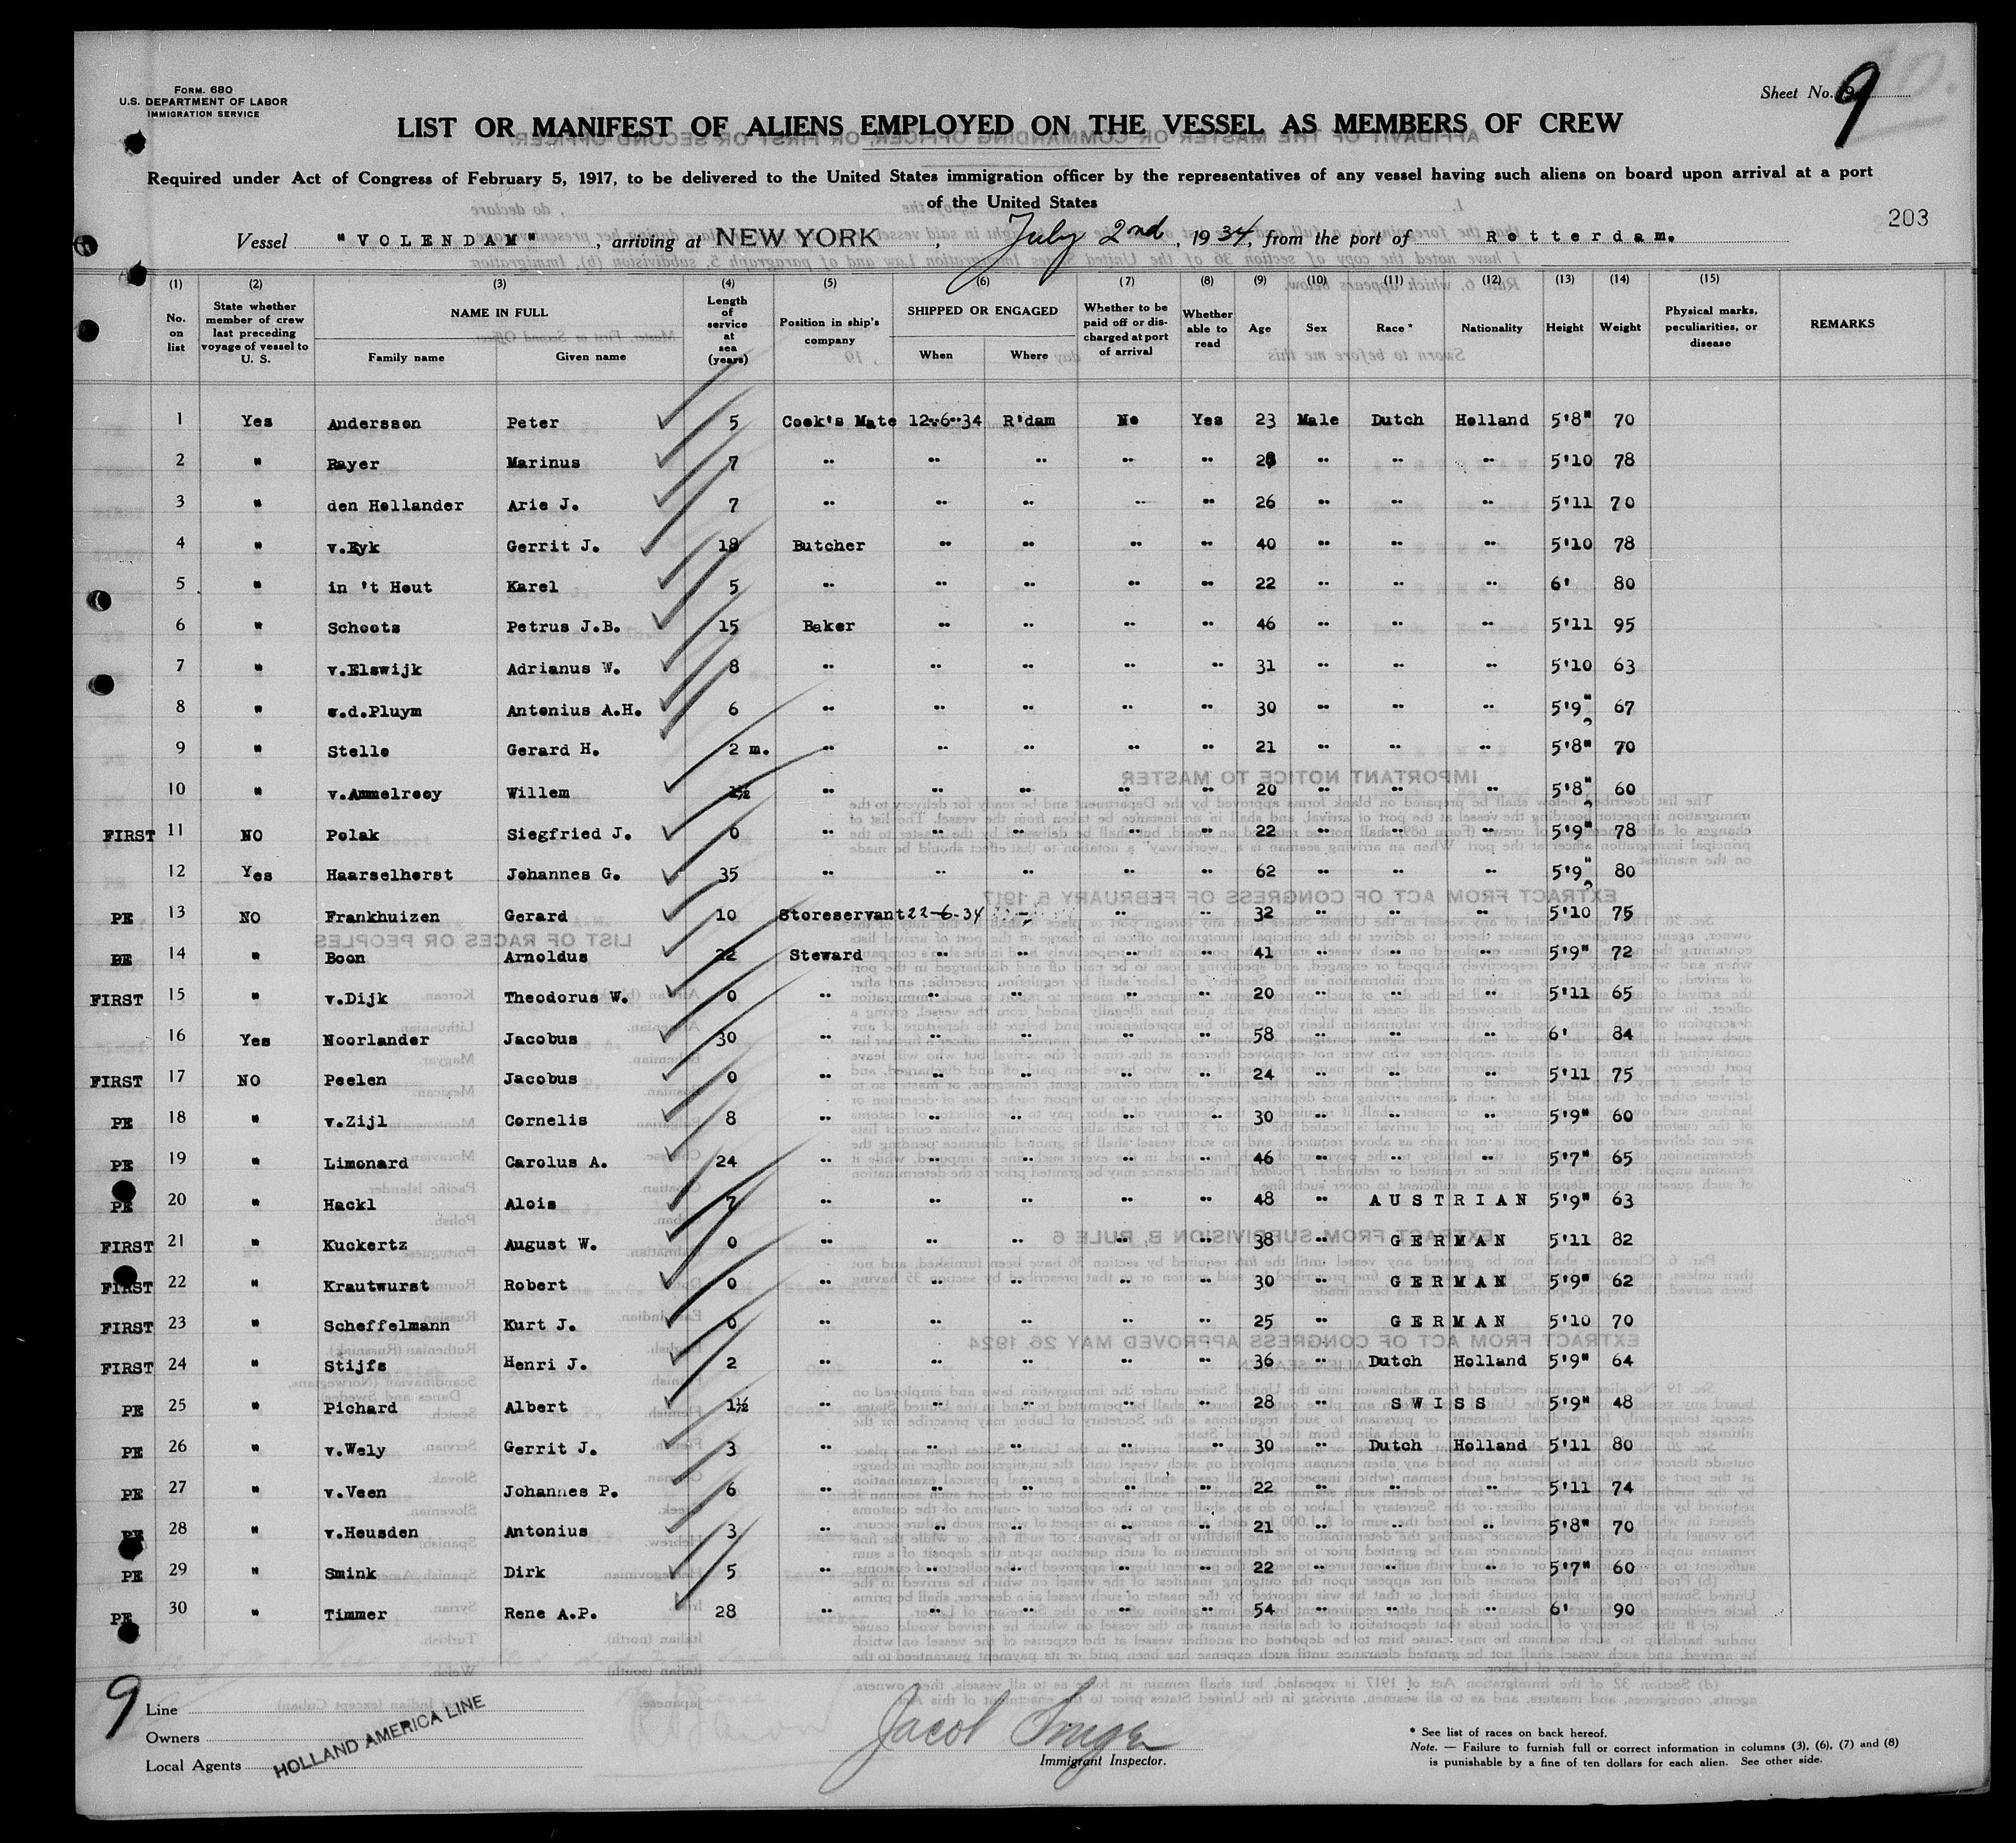 FORM. 680
U.S. DEPARTMENT OF LABOR
IMMIGRATION SERVICE
Sheet No. 9
LIST OR MANIFEST OF ALIENS EMPLOYED ON THE VESSEL AS MEMBERS OF CREW
Required under Act of Congress of February 5, 1917, to be delivered to the United States immigration officer by the representatives of any vessel having such aliens on board upon arrival at a port
of the United States
203
Vessel "VOLENDAM", arriving at NEW YORK, July 2nd, 1934, from the port of Rotterdam.
(1) (2) (3) (4) (5) (6) (7) (8) (9) (10) (11) (12) (13) (14) (15)
No. on list | State whether member of crew last preceding voyage of vessel to U. S. | NAME IN FULL Family name Given name | Length of service at sea (years) | Position in ship's company | SHIPPED OR ENGAGED When Where | Whether to be paid off or discharged at port of arrival | Whether able to read | Age | Sex | Race * | Nationality | Height | Weight | Physical marks, peculiarities, or disease | REMARKS
1 Yes Andersson Peter 5 Cook's Mate 12-6-34 R'dam No Yes 23 Male Dutch Holland 5'8" 70
2 " Rayer Marinus 7 " " " " " 28 " " " 5'10 78
3 " den Hollander Arie J. 7 " " " " " 26 " " " 5'11 70
4 " v.Eyk Gerrit J. 18 Butcher " " " " 40 " " " 5'10 78
5 " in 't Hout Karel 5 " " " " " 22 " " " 6' 80
6 " Schoots Petrus J.B. 15 Baker " " " " 46 " " " 5'11 95
7 " v.Elswijk Adrianus W. 8 " " " " " 31 " " " 5'10 63
8 " v.d.Pluym Antonius A.H. 6 " " " " " 30 " " " 5'9" 67
9 " Stelle Gerard H. 2 m. " " " " " 21 " " " 5'8" 70
10 " v.Ammelrooy Willem 1½ " " " " " 20 " " " 5'8" 60
FIRST 11 NO Polak Siegfried J. 0 " " " " " 22 " " " 5'9" 78
12 Yes Haarselhorst Johannes G. 35 " " " " " 62 " " " 5'9" 80
PE 13 NO Frankhuizen Gerard 10 Storeservant 22-6-34 " " " 32 " " " 5'10 75
PE 14 " Boon Arnoldus 22 Steward " " " " 41 " " " 5'9" 72
FIRST 15 " v.Dijk Theodorus W. 0 " " " " " 20 " " " 5'11 65
16 Yes Noorlander Jacobus 30 " " " " " 58 " " " 6' 84
FIRST 17 NO Peelen Jacobus 0 " " " " " 24 " " " 5'11 75
PE 18 " v.Zijl Cornelis 8 " " " " " 30 " " " 5'9" 60
PE 19 " Limonard Carolus A. 24 " " " " " 46 " " " 5'7" 65
PE 20 " Hackl Alois 7 " " " " " 48 " AUSTRIAN 5'9" 63
FIRST 21 " Kuckertz August W. 0 " " " " " 38 " GERMAN 5'11 82
FIRST 22 " Krautwurst Robert 0 " " " " " 30 " GERMAN 5'9" 62
FIRST 23 " Scheffelmann Kurt J. 0 " " " " " 25 " GERMAN 5'10 70
FIRST 24 " Stijfs Henri J. 2 " " " " " 36 " Dutch Holland 5'9" 64
PE 25 " Pichard Albert 1½ " " " " " 28 " SWISS 5'9" 48
PE 26 " v.Wely Gerrit J. 3 " " " " " 30 " Dutch Holland 5'11 80
PE 27 " v.Veen Johannes P. 6 " " " " " 22 " " " 5'11 74
PE 28 " v.Heusden Antonius 3 " " " " " 21 " " " 5'8" 70
PE 29 " Smink Dirk 5 " " " " " 22 " " " 5'7" 60
PE 30 " Timmer Rene A.P. 28 " " " " " 54 " " " 6' 90
9
Line
Owners
Local Agents
HOLLAND AMERICA LINE
Jacob
Immigrant Inspector.
* See list of races on back hereof.
Note. — Failure to furnish full or correct information in columns (3), (6), (7) and (8)
is punishable by a fine of ten dollars for each alien. See other side.